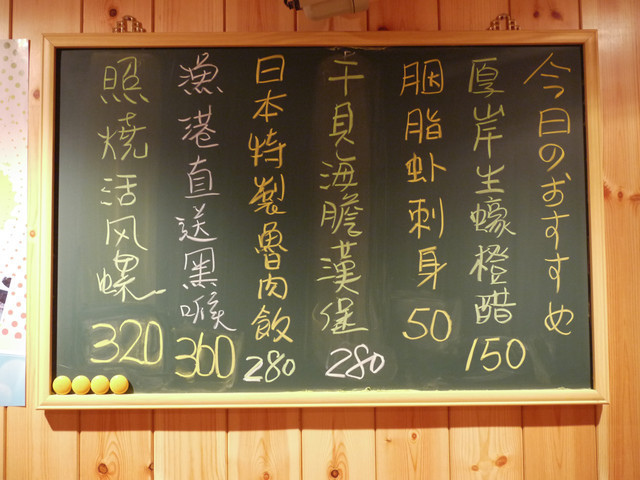 今日のおすすめ
厚岸生蠔橙醋 150
胭脂虾刺身 50
干貝海膽漢堡 280
日本特製魯肉飯 280
漁港直送黑喉 360
照燒活风螺 320